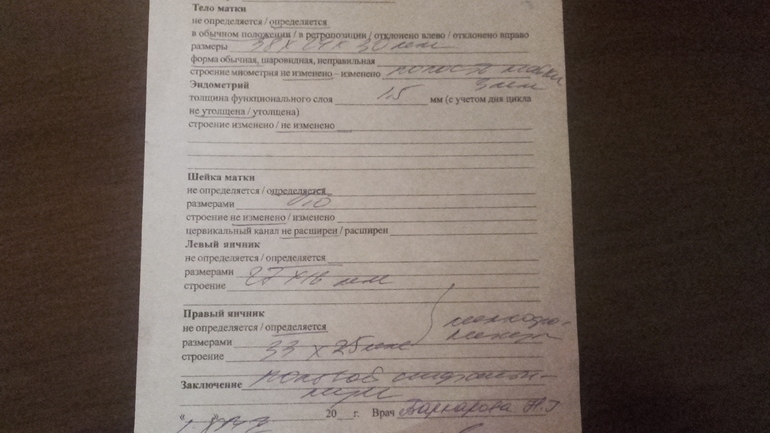 Тело матки
не определяется / определяется
в обычном положении / в ретропозиции / отклонено влево / отклонено вправо
размеры 38 х
форма обычная, шаровидная, неправильная
строение миометрия не изменено – изменено полость матки
3 мм
Эндометрий
толщина функционального слоя 1,5 мм (с учетом дня цикла
не утолщена / утолщена)
строение изменено / не изменено
Шейка матки
не определяется / определяется
размерами
строение не изменено / изменено
цервикальный канал не расширен / расширен
Левый яичник
не определяется / определяется
размерами 27 х 16 мм
строение
Правый яичник
не определяется / определяется
размерами 33 х 25 мм
строение
Заключение половой
20 г. Врач